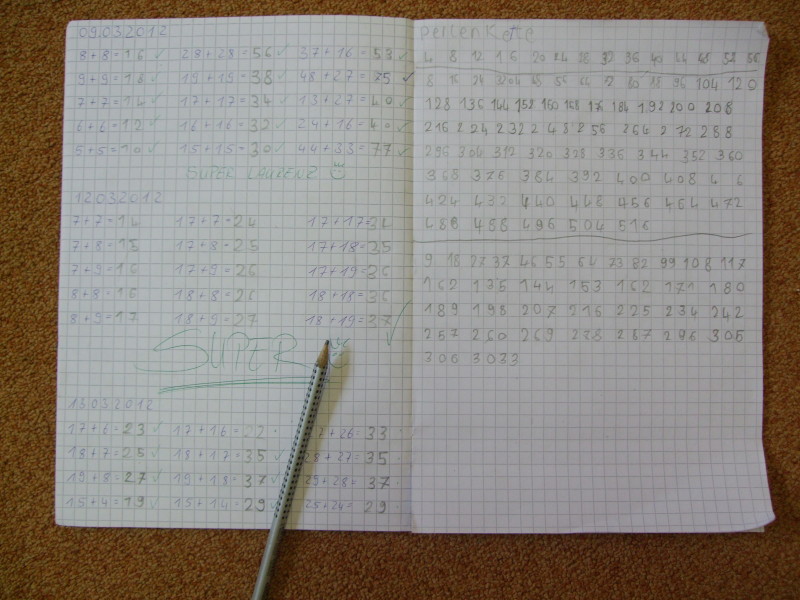 09.03.2012
8+8=16 ✓ 28+28=56 ✓ 37+16=53 ✓
9+9=18 ✓ 19+19=38 ✓ 48+27=75 ✓
7+7=14 ✓ 17+17=34 ✓ 13+27=40 ✓
6+6=12 ✓ 16+16=32 ✓ 24+16=40 ✓
5+5=10 ✓ 15+15=30 ✓ 44+33=77 ✓
SUPER LAURENZ
12.03.2012
7+7=14 17+7=24 17+17=34
7+8=15 17+8=25 17+18=35
7+9=16 17+9=26 17+19=36
8+8=16 18+8=26 18+18=36
8+9=17 18+9=27 18+19=37
SUPER
13.03.2012
17+6=23 ✓ 17+16=22 +26=33
18+7=25 ✓ 18+17=35 ✓ +27=35
19+8=27 ✓ 19+18=37 ✓ 29+28=37
15+4=19 ✓ 15+14=29 ✓ 25+24=29
Perlenkette
4 8 12 16 20 24 28 32 36 40 44 48 52 56
8 16 24 40 48 56 64 72 80 88 96 104 120
128 136 144 152 160 168 176 184 192 200 208
216 224 232 248 256 264 272 288
296 304 312 320 328 336 344 352 360
368 376 384 392 400 408 4 6
424 432 440 448 456 464 472
488 496 504 516
9 18 27 37 46 55 64 73 82 99 108 117
162 135 144 153 162 171 180
189 198 207 216 225 234 242
257 260 269 278 287 296 305
306 3033